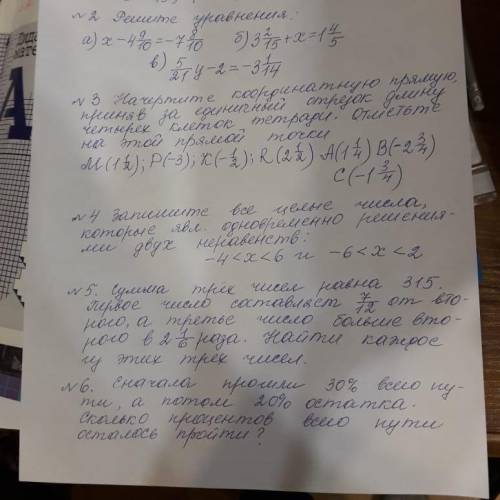 №2 Решите уравнения:
а) x - 4 9/10 = -7 8/10 б) 3 2/15 + x = 1 4/5
в) 5/21 y - 2 = -3 1/14
№3 Начертите координатную прямую,
приняв за единичный отрезок длину
четырёх клеток тетради. Отметьте
на этой прямой точки
M(1 1/2); P(-3); K(-1/2); R(2 1/2) A(1 1/4) B(-2 3/4)
C(-1 3/4)
№4 Запишите все целые числа,
которые явл. одновременно решения-
ми двух неравенств:
-4 < x < 6 и -6 < x < 2
№5. Сумма трёх чисел равна 315.
Первое число составляет 7/12 от вто-
рого, а третье число больше вто-
рого в 2 1/6 раза. Найти каждое
из этих трёх чисел.
№6. Сначала прошли 30% всего пу-
ти, а потом 20% остатка.
Сколько процентов всего пути
осталось пройти?